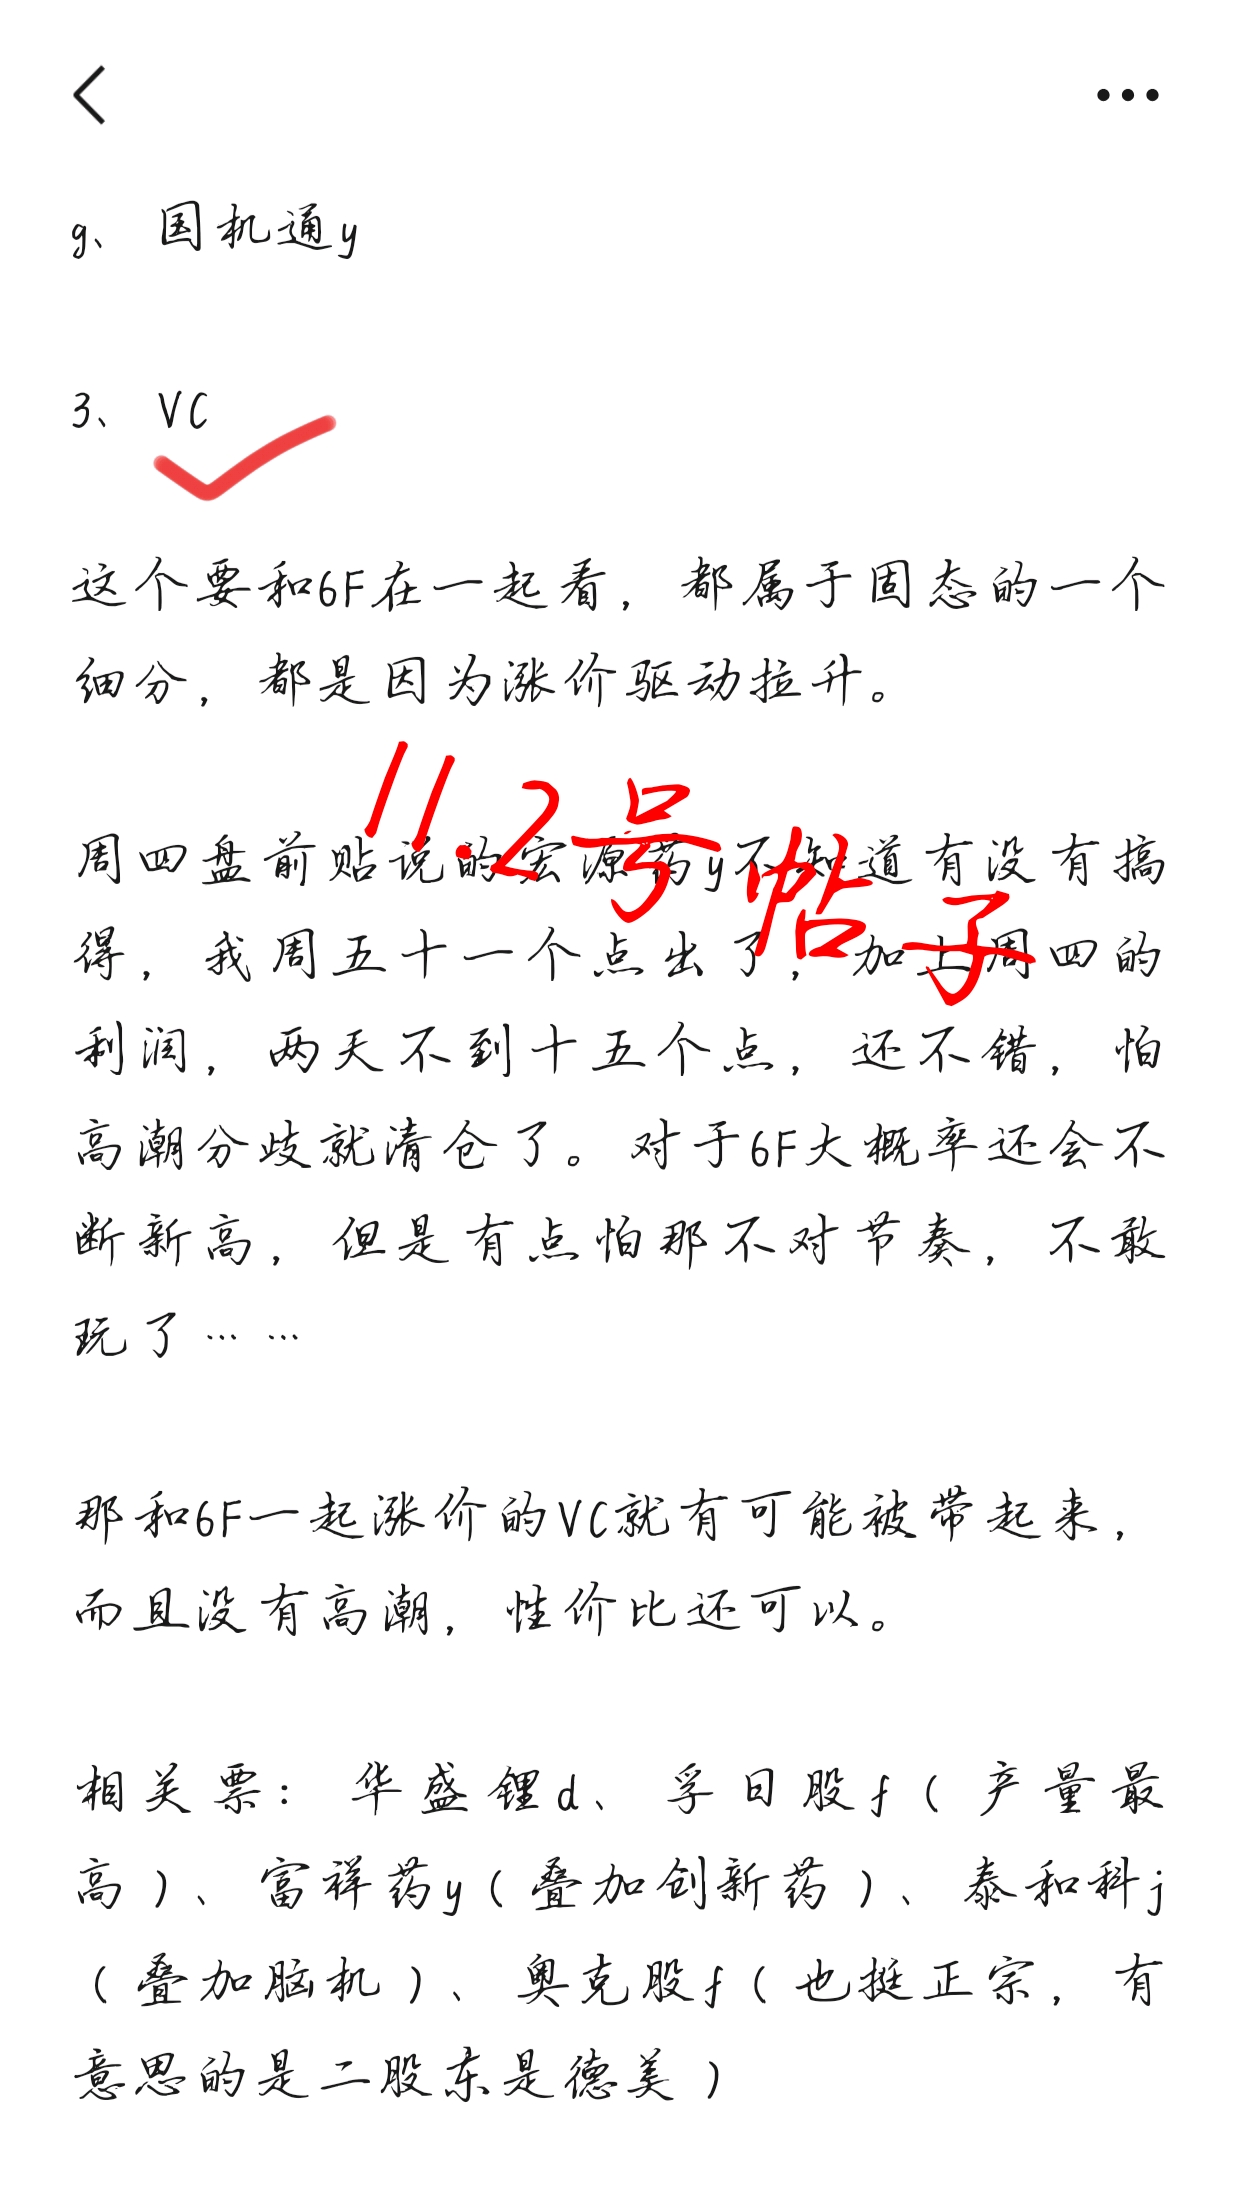 g、 国机通y
3、 VC
这个要和6F在一起看，都属于固态的一个
细分，都是因为涨价驱动拉升。
11.2号帖子
周四盘前贴说的宏源药y不知道有没有搞
得，我周五十一个点出了，加上周四的
利润，两天不到十五个点，还不错，怕
高潮分歧就清仓了。对于6F大概率还会不
断新高，但是有点怕那不对节奏，不敢
玩了……
那和6F一起涨价的VC就有可能被带起来，
而且没有高潮，性价比还可以。
相关票：华盛锂d、孚日股f（产量最
高）、富祥药y（叠加创新药）、泰和科j
（叠加脑机）、奥克股f（也挺正宗，有
意思的是二股东是德美）